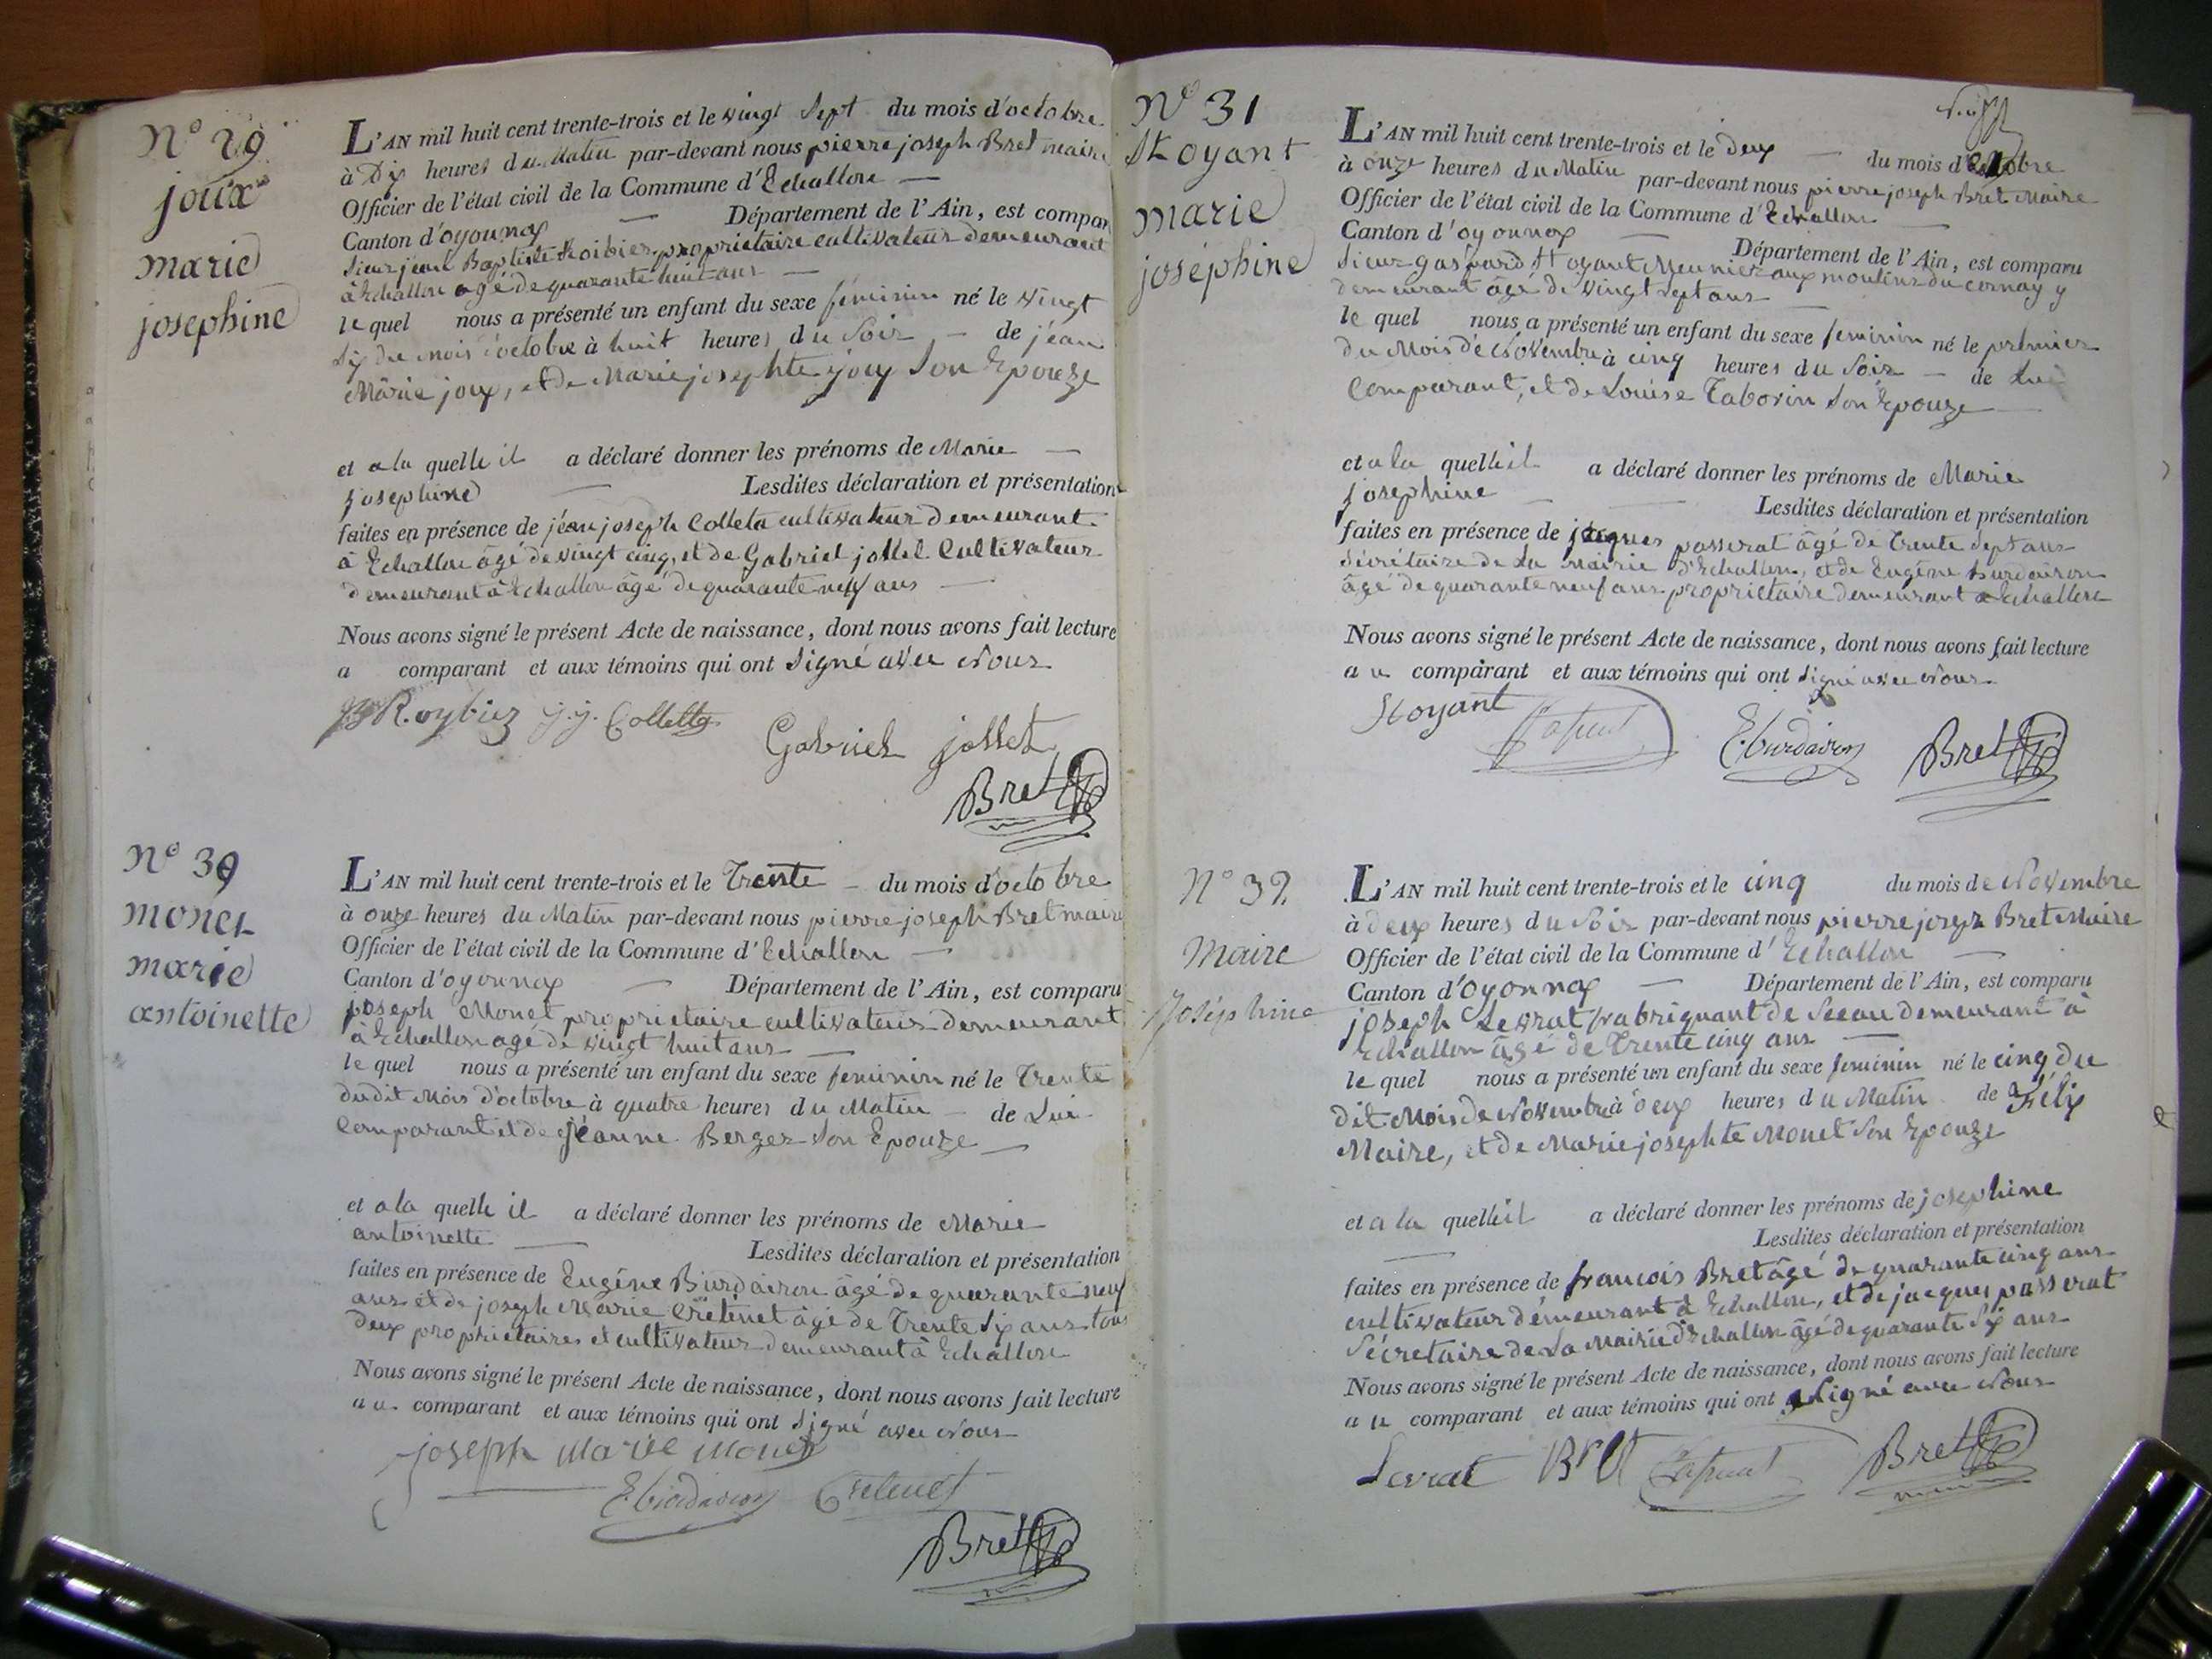 N° 29
joux
marie
josephine
L'AN mil huit cent trente-trois et le vingt Sept du mois d'octobre
à Dix heures du Matin par-devant nous pierre joseph Bret maire
Officier de l'état civil de la Commune d'Echallon —
Canton d'oyonnax — Département de l'Ain, est compar
Sieur jean Baptiste Roibier proprietaire cultivateur demeurant
à Echallon agé de quarante huit ans —
le quel nous a présenté un enfant du sexe féminin né le vingt
Six du mois d'octobre à huit heures du Soir — de jéan
Marie joux, et de Marie josephte joux Son Epouze
et a la quelle il a déclaré donner les prénoms de Marie —
josephine — Lesdites déclaration et présentation
faites en présence de jéan joseph Colleta cultivateur Demeurant
à Echallon âgé de vingt cinq, et de Gabriel jollet Cultivateur
demeurant à Echallon âgé de quarante neuf ans —
Nous avons signé le présent Acte de naissance, dont nous avons fait lecture
a comparant et aux témoins qui ont Signé avec Nous
JB R.oybiez j.j. Colletta
Gabriel jollet
Bret
N° 30
monet
marie
antoinette
L'AN mil huit cent trente-trois et le Trente — du mois d'octobre
à onze heures du Matin par-devant nous pierre joseph Bret maire
Officier de l'état civil de la Commune d'Echallon —
Canton d'oyonnax — Département de l'Ain, est comparu
joseph Monet proprietaire cultivateur demeurant
à Echallon agé de vingt huit ans —
le quel nous a présenté un enfant du sexe feminin né le Trente
dudit Mois d'octobre à quatre heures du Matin — de Lui
Comparant et de Jéanne Berger Son Epouze —
et a la quelle il a déclaré donner les prénoms de Marie
antoinette — Lesdites déclaration et présentation
faites en présence de Eugéne Burdairon âgé de quarante neuf
ans et de joseph Marie Crétenet âgé de Trente Six ans tous
Deux proprietaires et cultivateur demeurant à Echallon
Nous avons signé le présent Acte de naissance, dont nous avons fait lecture
au comparant et aux témoins qui ont Signé avec Nous
joseph marie monet
E. burdairon Cretenet
Bret
N° 31
Stoyant
marie
joséphine
L'AN mil huit cent trente-trois et le Deux — du mois d'octobre
à onze heures du Matin par-devant nous pierre joseph Bret Maire
Officier de l'état civil de la Commune d'Echallon —
Canton d'oyonnax — Département de l'Ain, est comparu
Sieur gaspard Stoyant Meunier aux moulins du cernay y
demeurant âgé de vingt sept ans
le quel nous a présenté un enfant du sexe feminin né le prémier
du Mois de Novembre à cinq heures du Soir — de Lui
Comparant, et de Louise Taborin Son Epouze —
et a la quelle il a déclaré donner les prénoms de Marie
josephine — Lesdites déclaration et présentation
faites en présence de jacques passerat âgé de Trente Sept ans
Sécrétaire de La Mairie d'Echallon, et de Eugéne burdairon
âgé de quarante neuf ans proprietaire demeurant a Echallon
Nous avons signé le présent Acte de naissance, dont nous avons fait lecture
au comparant et aux témoins qui ont Signé avec Nous
Stoyant E. burdairon Bret
N° 32
Maire
Joséphine
L'AN mil huit cent trente-trois et le cinq du mois de Novembre
à deux heures du Soir par-devant nous pierre josep Bret Maire
Officier de l'état civil de la Commune d'Echallon —
Canton d'Oyonnax — Département de l'Ain, est comparu
joseph Levrat frabriquant de Seeau demeurant à
Echallon âgé de Trente cinq ans —
le quel nous a présenté un enfant du sexe feminin né le cinq du
dit Mois de Novembre à deux heures du Matin de Félix
Maire, et de Marie josephte Monet Son Epouze
et a la quelle il a déclaré donner les prénoms de josephine
— Lesdites déclaration et présentation
faites en présence de francois Bret âgé de quarante cinq ans
cultivateur démeurant à Echallon, et de jacques passerat
Sécretaire de La Mairie d'Echallon âgé de quarante Six ans
Nous avons signé le présent Acte de naissance, dont nous avons fait lecture
au comparant et aux témoins qui ont Signé avec Nous
Levrat Bret Bret